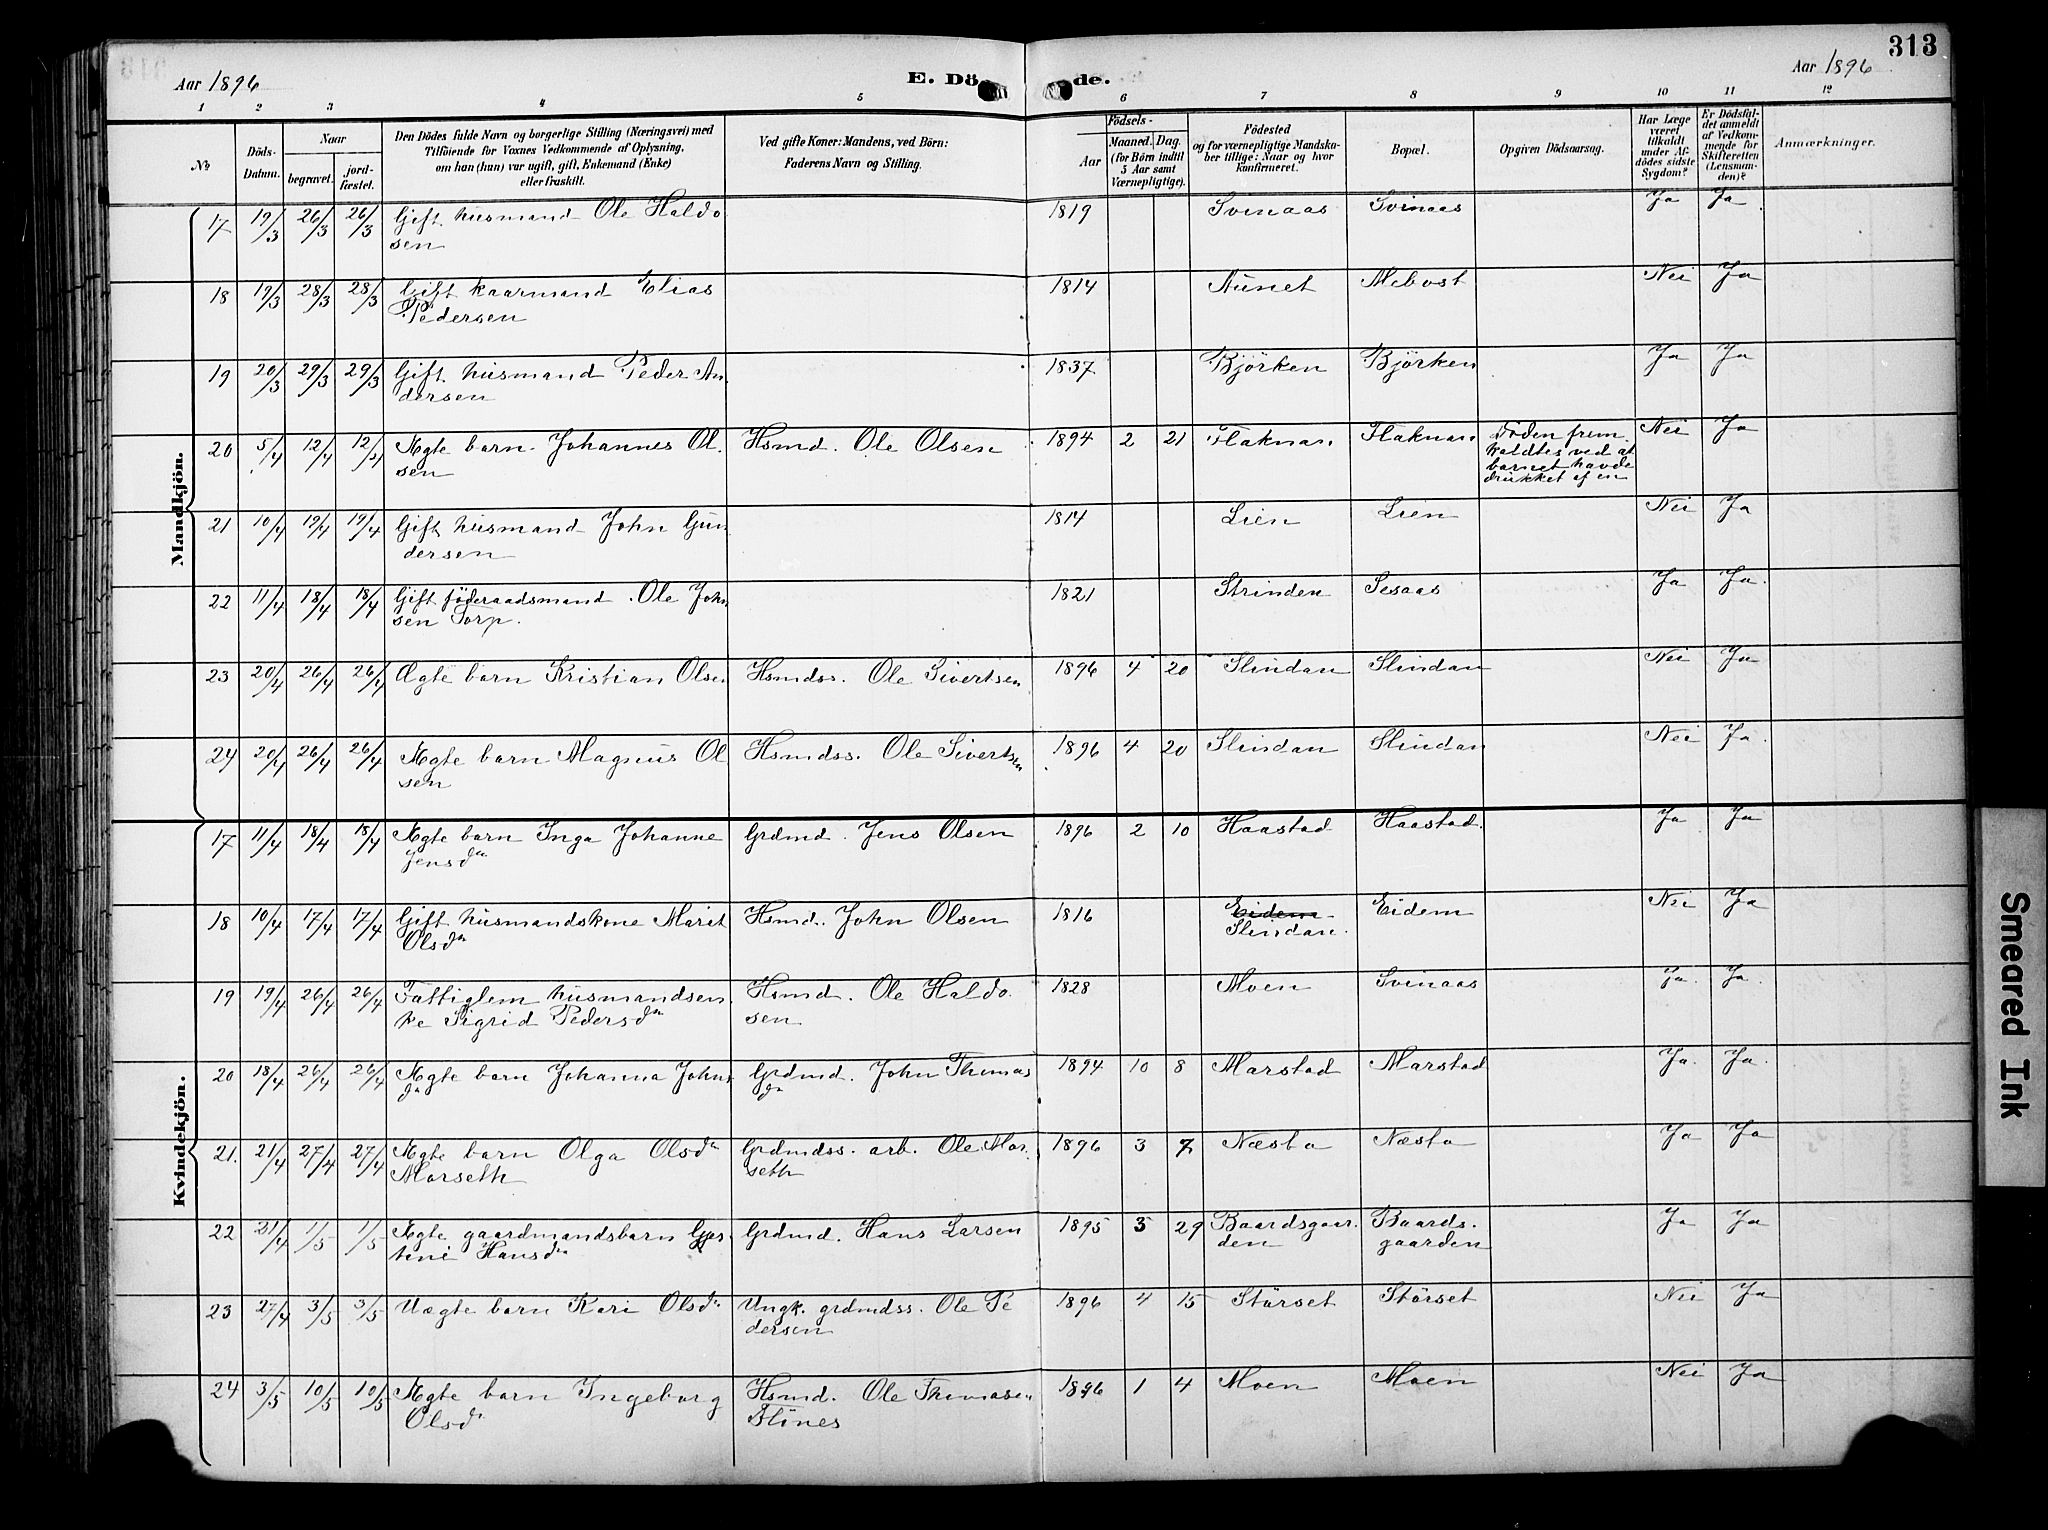 313
Aar 1896
E. Dö de.
Aar 1896
1 2 3 4 5 6 7 8 9 10 11 12
No
Döds-Datum.
Naar
begravet.
jord-fæstet.
Den Dödes fulde Navn og borgerlige Stilling (Næringsvei) med
Tilföiende for Voxnes Vedkommende af Oplysning,
om han (hun) var ugift, gift, Enkemand (Enke)
eller fraskilt.
Ved gifte Koner: Mandens, ved Börn:
Faderens Navn og Stilling.
Födsels-
Aar
Maaned. Dag.
(for Börn indtil
5 Aar samt
Værnepligtige).
Födested
og for værnepligtige Mandska-
ber tillige: Naar og hvor
konfirmeret.
Bopæl.
Opgiven Dödsaarsag.
Har Læge
været
tilkaldt
under Af-
dödes sidste
Sygdom?
Er Dödsfal-
det anmeldt
af Vedkom-
mende for
Skifteretten
(Lensman-
den)?
Anmærkninger.
Mandkjön.
17 19/3 26/3 26/3 Gift husmand Ole Haldo 1819 Svinaas Svinaas Ja Ja
sen
18 19/3 28/3 28/3 Gift kaarmand Elias 1814 Aunet Mebost Nei Ja
Pedersen
19 20/3 29/3 29/3 Gift husmand Peder An 1837 Björken Björken Ja Ja
dersen
20 5/4 12/4 12/4 Ægte barn Johannes Ol Hsmd. Ole Olsen 1894 2 21 Flaknan Flaknan Döden frem Nei Ja
sen kaldtes ved at
barnet havde
drukket af en
21 10/4 19/4 19/4 Gift husmand John Gun 1814 Lien Lien Nei Ja
dersen
22 11/4 18/4 18/4 Gift föderaadsmand Ole John 1821 Strinden Sesaas Ja Ja
sen Torp.
23 20/4 26/4 26/4 Ægte barn Kristian Olsen Hsmdss. Ole Sivertsen 1896 4 20 Slindan Slindan Nei Ja
24 20/4 26/4 26/4 Ægte barn Magnus Ol Hsmdss. Ole Sivertsen 1896 4 20 Slindan Slindan Nei Ja
sen
Kvindekjön.
17 11/4 18/4 18/4 Ægte barn Inga Johanne Grdmd. Jens Olsen 1896 2 10 Haastad Haastad Ja Ja
Jensdr
18 10/4 17/4 17/4 Gift husmandskone Marit Hsmd. John Olsen 1816 Eidem Eidem Nei Ja
Olsdr Slindan
19 19/4 26/4 26/4 Fattiglem husmandsen Hsmd. Ole Haldo 1828 Moen Svinaas Ja Ja
ke Sigrid Pedersdr sen
20 18/4 26/4 26/4 Ægte barn Johanna Johns Grdmd. John Thomas 1894 10 8 Marstad Marstad Ja Ja
dr
21. 21/4 27/4 27/4 Ægte barn Olga Olsdr Grdmdss. arb. Ole Mor 1896 3 7 Næsta Næsta Ja Ja
Morseth seth
22 21/4 1/5 1/5 Ægte gaardmandsbarn Gjer Grdmd. Hans Larsen 1895 3 29 Baardsgaar Baards Ja Ja
tine Hansdr den gaarden
23 27/4 3/5 3/5 Uægte barn Kari Olsdr Ungk. grdmdss. Ole Pe 1896 4 15 Störset Störset Nei Ja
dersen
24 3/5 10/5 10/5 Ægte barn Ingeborg Hsmd. Ole Thomasen 1896 1 4 Moen Moen Nei Ja
Olsdr
Smeared Ink